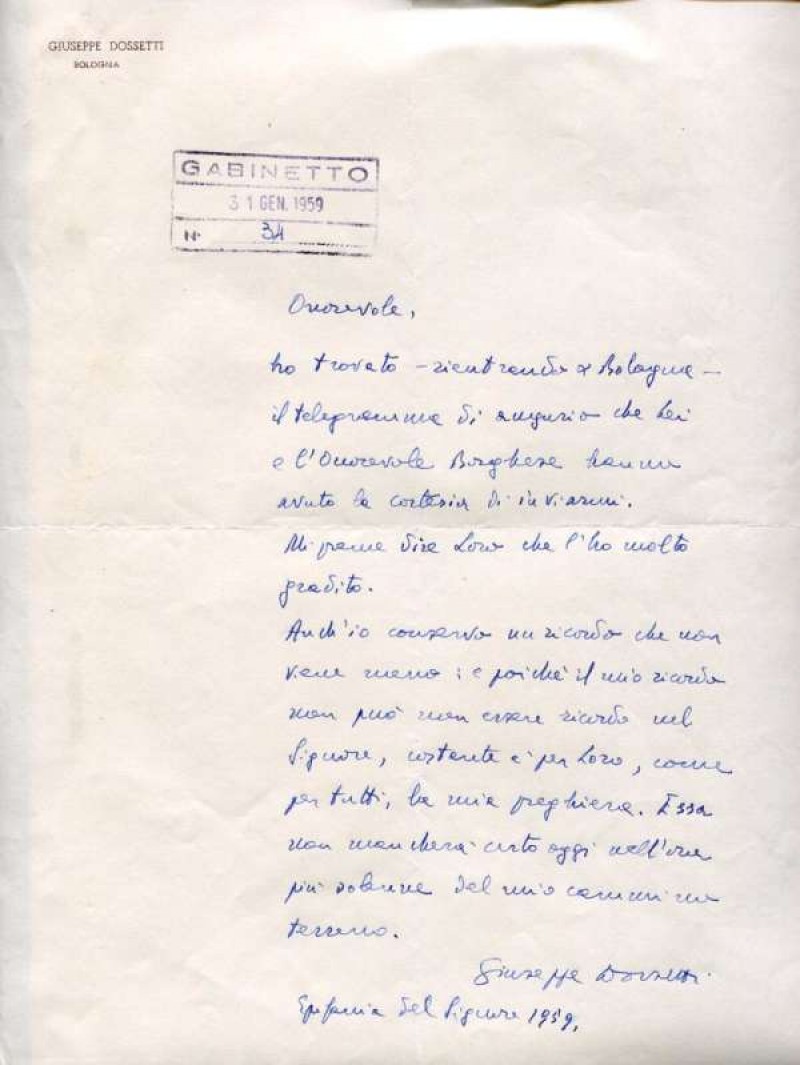 GIUSEPPE DOSSETTI
BOLOGNA
GABINETTO
31 GEN. 1959
N° 34
Onorevole,
ho trovato – rientrando a Bologna –
il telegramma di augurio che Lei
e l'Onorevole Borghese hanno
avuto la cortesia di inviarmi.
Mi preme dire Loro che l'ho molto
gradito.
Anch'io conservo un ricordo che non
viene meno : e poiché il mio ricordo
non può non essere ricordo nel
Signore, costante è per Loro, come
per tutti, la mia preghiera. Essa
non mancherà certo oggi nell'ora
più solenne del mio cammino
terreno.
Giuseppe Dossetti.
Epifania del Signore 1959.